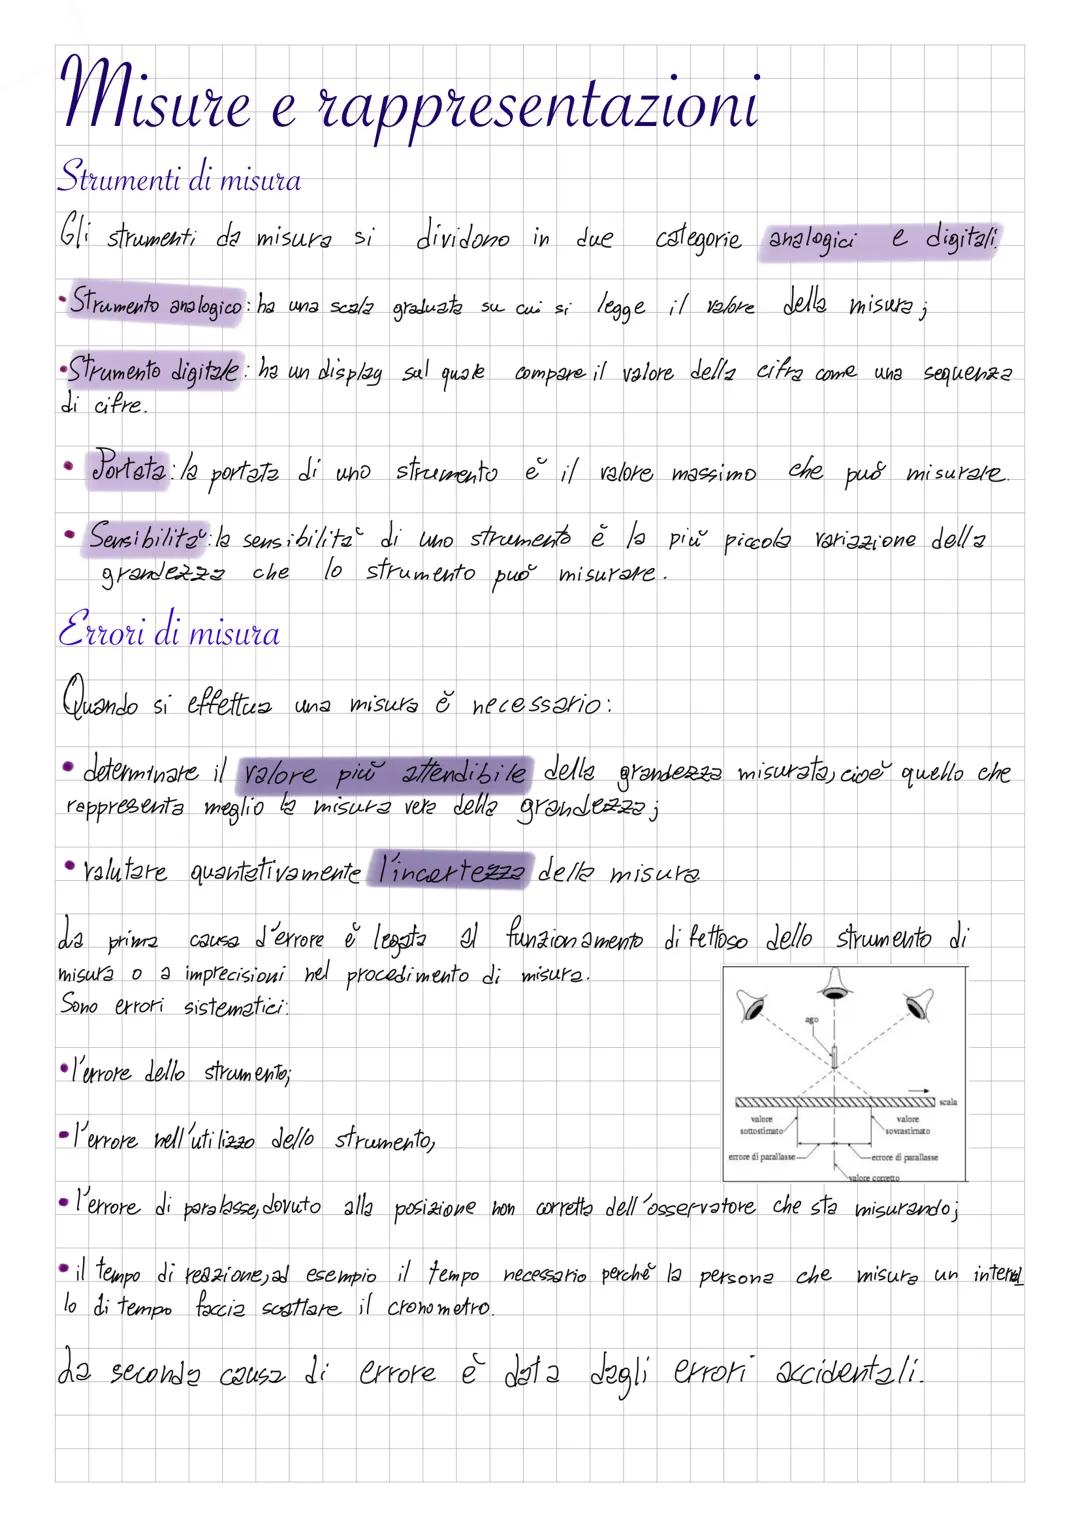 Misure e rappresentazioni
Strumenti di misura
Gli strumenti da misura si dividono in due categorie analogici e digitali.
• Strumento analogico: ha una scala graduata su cui si legge il valore della misura;
• Strumento digitale: ha un display sul quale compare il valore della cifra come una sequenza
di cifre.
• Portata: la portata di uno strumento è il valore massimo che può misurare.
• Sensibilità: la sensibilità di uno strumento è la più piccola variazione della
grandezza che lo strumento può misurare.
Errori di misura
Quando si effettua una misura è necessario:
• determinare il valore più attendibile della grandezza misurata, cioè quello che
rappresenta meglio la misura vera della grandezza;
• valutare quantativamente l'incertezza della misura
La prima causa d'errore è legata al funzionamento difettoso dello strumento di
misura o a imprecisioni nel procedimento di misura.
Sono errori sistematici:
ago
scala
valore
sottostimato
valore
sovrastimato
errore di parallasse
errore di parallasse
valore corretto
• l'errore dello strumento;
• l'errore nell'utilizzo dello strumento,
• l'errore di paralasse, dovuto alla posizione non corretta dell'osservatore che sta misurando;
• il tempo di reazione, ad esempio il tempo necessario perchè la persona che misura un interval
lo di tempo faccia scattare il cronometro.
La seconda causa di errore è data dagli errori accidentali.